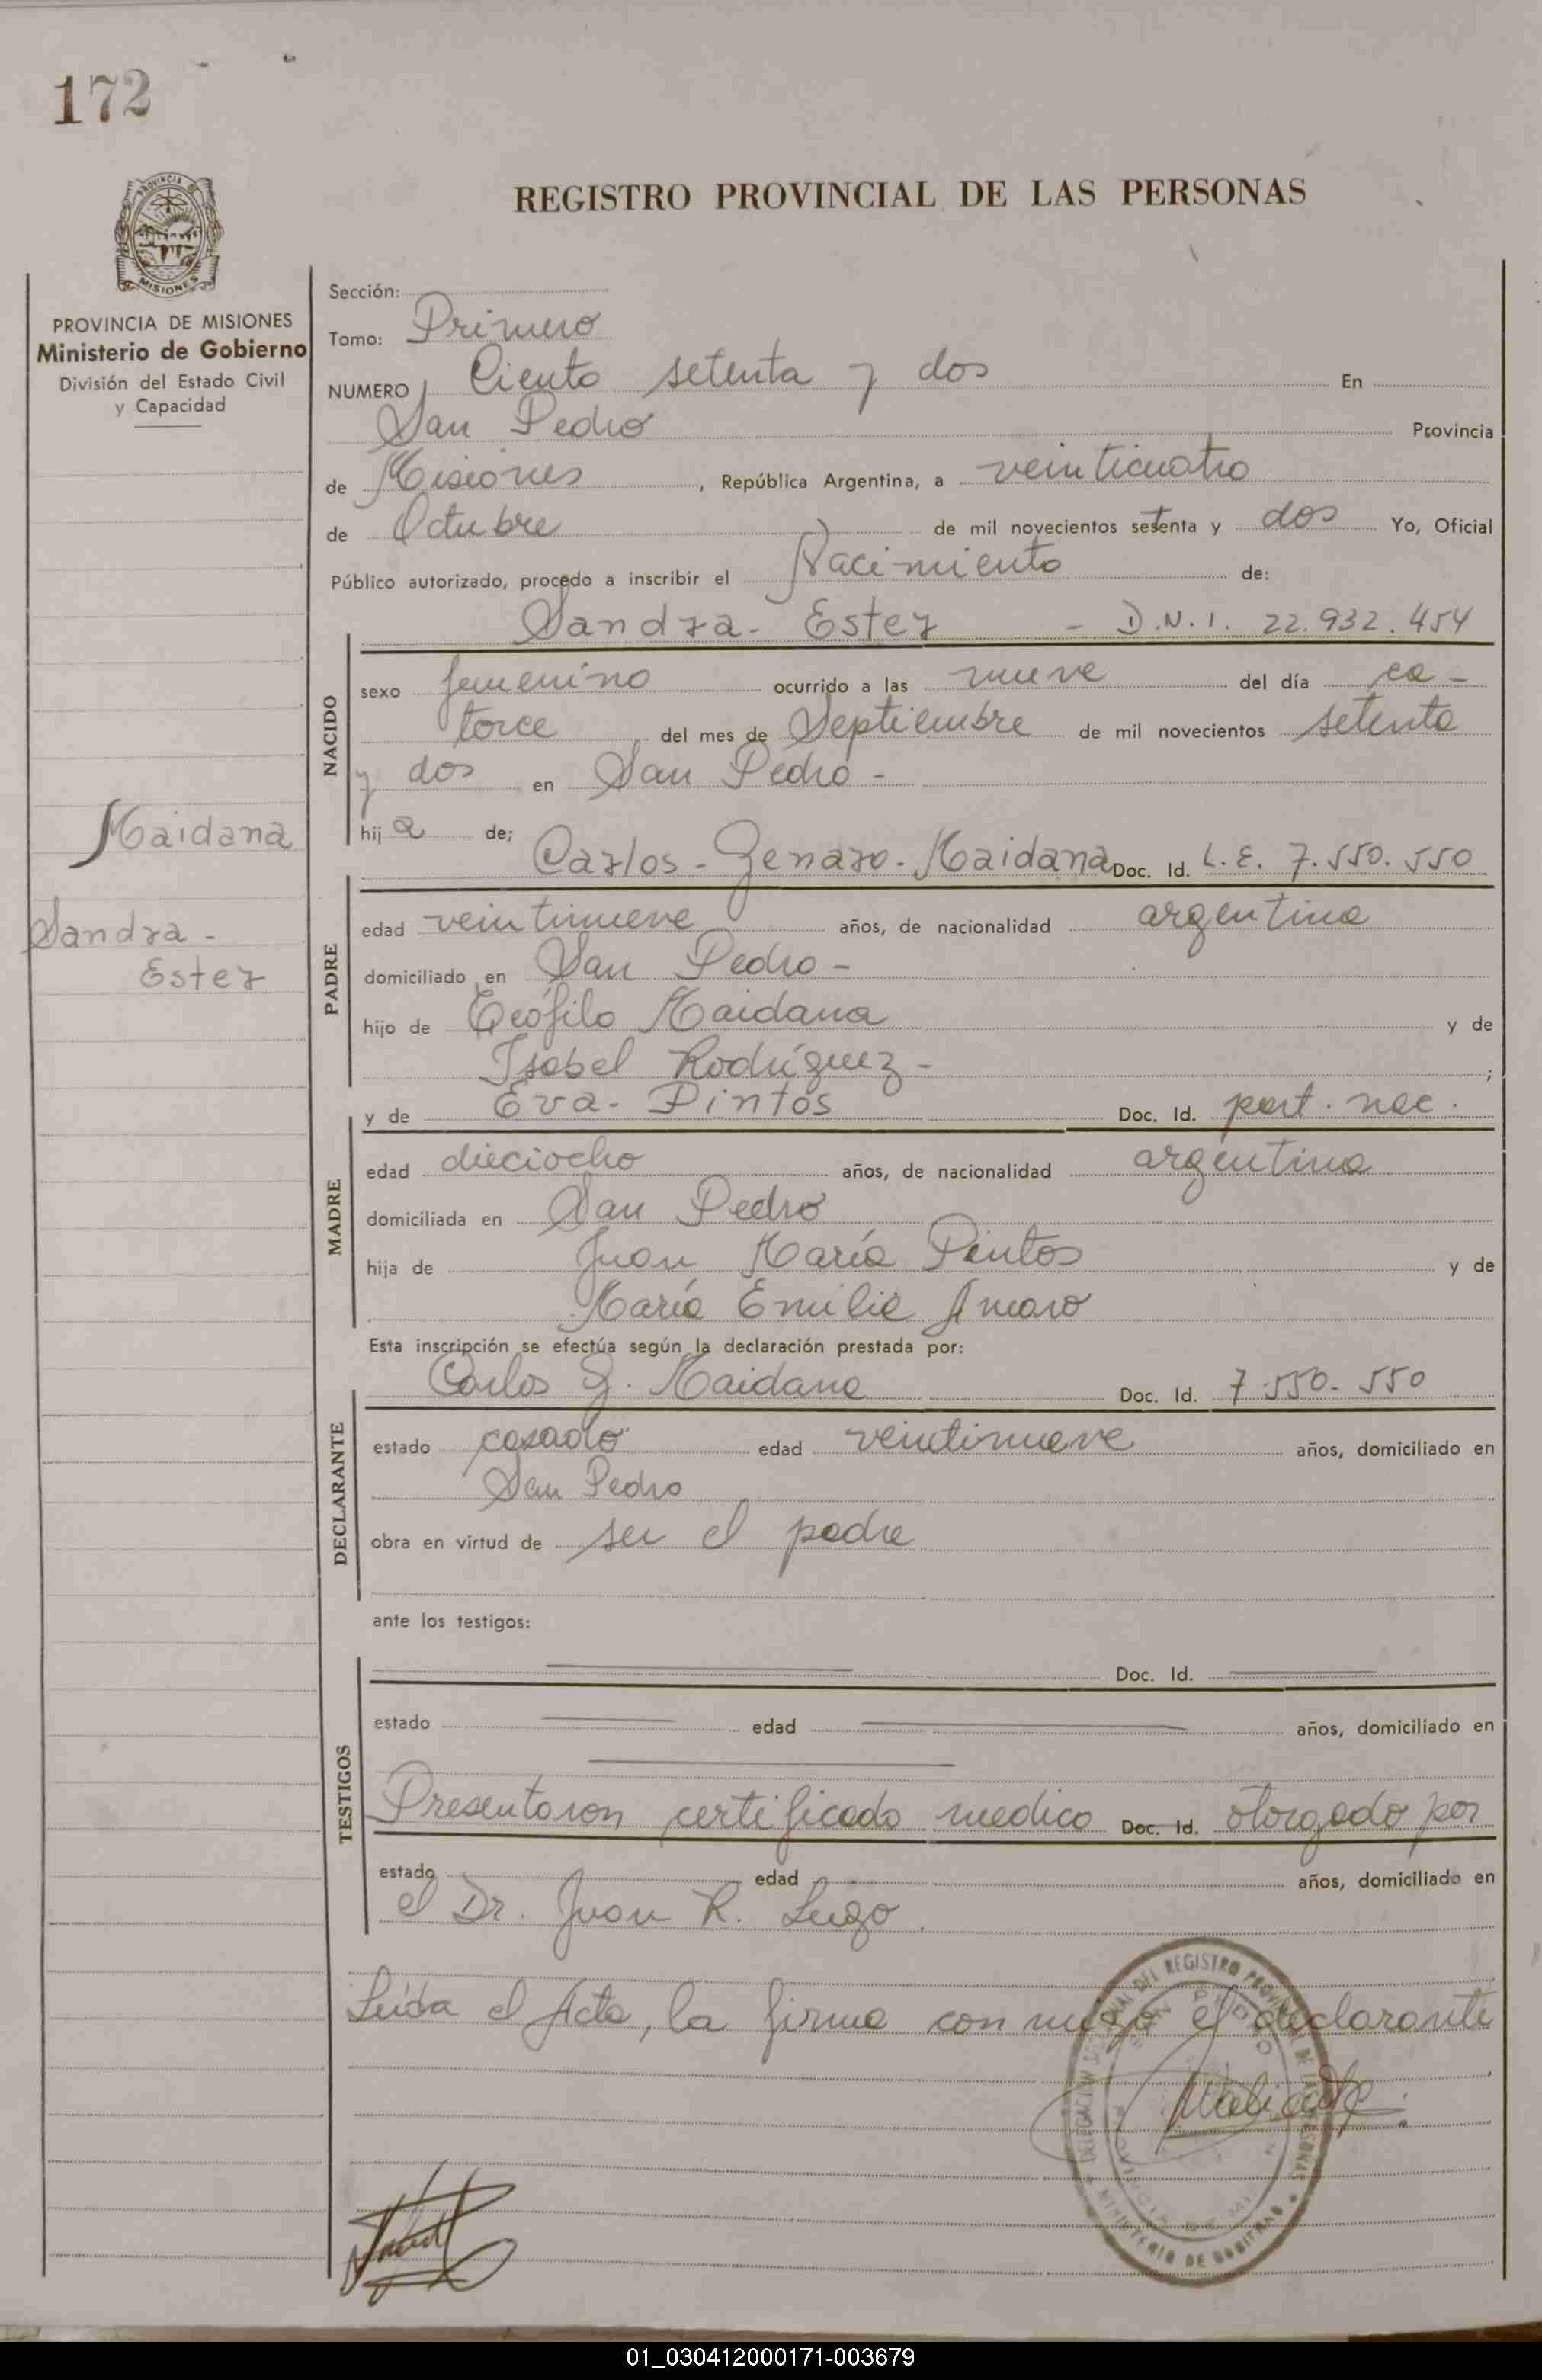 172
REGISTRO PROVINCIAL DE LAS PERSONAS
PROVINCIA DE MISIONES
PROVINCIA DE MISIONES
Ministerio de Gobierno
División del Estado Civil
y Capacidad
Maidana
Sandra -
Ester
Sección:
Tomo: Primero
NUMERO Ciento setenta y dos En
San Pedro Provincia
de Misiones, República Argentina, a veinticuatro
de Octubre de mil novecientos setenta y dos Yo, Oficial
Público autorizado, procedo a inscribir el Nacimiento de:
Sandra - Ester - D.N.I. 22.932.454
NACIDO
sexo femenino ocurrido a las nueve del día ca-
torce del mes de Septiembre de mil novecientos setenta
y dos en San Pedro -
hija de; Carlos - Genaro - Maidana Doc. Id. L.E. 7.550.550
PADRE
edad veintinueve años, de nacionalidad argentina
domiciliado en San Pedro -
hijo de Teófilo Maidana y de
Isabel Rodríguez - ;
y de Eva - Pintos Doc. Id. part. nac.
MADRE
edad dieciocho años, de nacionalidad argentina
domiciliada en San Pedro
hija de Juan María Pintos y de
María Emilia Amaro
Esta inscripción se efectúa según la declaración prestada por:
Carlos G. Maidana Doc. Id. 7.550.550
DECLARANTE
estado casado edad veintinueve años, domiciliado en
San Pedro
obra en virtud de ser el padre
ante los testigos:
Doc. Id.
TESTIGOS
estado edad años, domiciliado en
Presentaron certificado medico Doc. Id. otorgado por
estado edad años, domiciliado en
el Dr. Juan R. Luigo.
Leída el Acta, la firma con migo el declarante
DELEGACION DEL REGISTRO PROVINCIAL DE LAS PERSONAS
SAN PEDRO
PROVINCIA DE MISIONES
MINISTERIO DE GOBIERNO
01_030412000171-003679